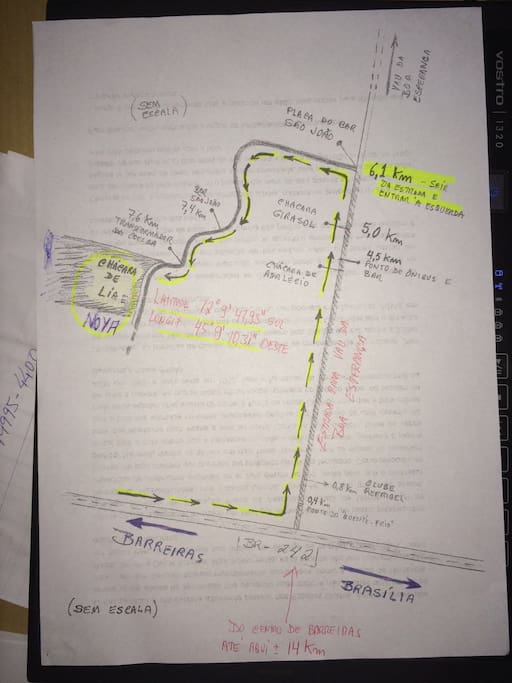 VOSTRO | 1320
VAU DA
BOA
ESPERANÇA
(SEM
ESCALA)
PLACA DO BAR
SÃO JOÃO
6,1 Km - SAIR
DA ESTRADA E
ENTRAR À ESQUERDA
BAR
SÃO JOÃO
7,4 Km
CHÁCARA
GIRASOL
5,0 Km
7,6 Km
TRANSFORMADOR
DA COELBA
4,5 Km
PONTO DE ÔNIBUS E
BAR
CHÁCARA DE
CHÁCARA
DE
LIA
NOVA
LATITUDE 12° 9' 47.95" SUL
LONGIT. 45° 9' 10.31" OESTE
ESTRADA PARA VAU DA
BOA ESPERANÇA
9995-4400
0,8 Km
CLUBE
0,4 Km
PONTE DA
BARREIRAS
[BR-242]
BRASÍLIA
(SEM ESCALA)
DO CENTRO DE BARREIRAS
ATÉ AQUI ± 14 Km